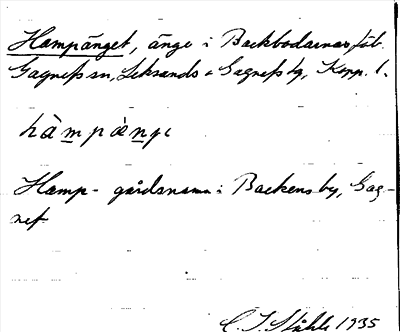 Hampänget, änge i Backbodarnas fäb.
Gagnefs sn, Leksands o Gagnefs tg, Kopp. l.
hàmpæ̀nge
Hamp- gårdsnamn i Backens by, Gag-
nef
C. I. Ståhle 1935